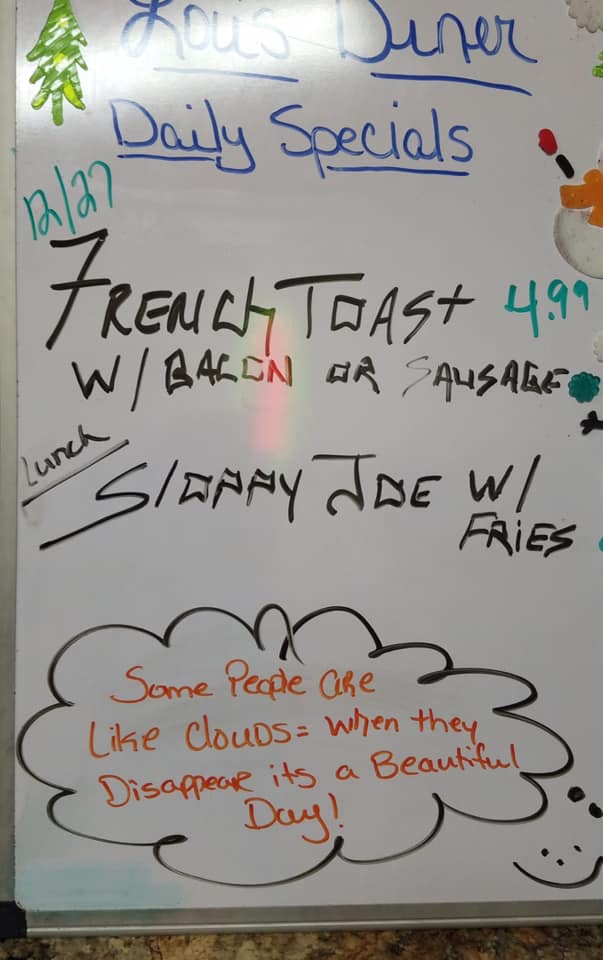 Lou's Diner
Daily Specials
12/27
FRENCH TOAST 4.99
W/ BACON OR SAUSAGE
Lunch
SlOPPY JOE W/
FRiES
Some People are
Like Clouds= when they
Disappear its a Beautiful
Day!